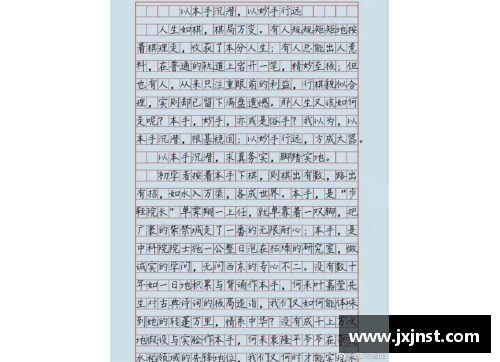 以本手沉潜，以妙手行远
人生如棋，棋局万变。有人规规矩矩地按
着棋理走，收获了本分人生；有人总能出人意
料，在普通的轨道上宕开一笔，精妙至极；但
也有人，从来只注重眼前的利益，行棋貌似合
理，实则却已留下满盘遗憾。那人生又该如何
走呢？本手，妙手，亦或是俗手？我以为，以
本手沉潜，根基稳固；以妙手行远，方成大器。
以本手沉潜，求真务实，脚踏实地。
初学者按着本手下棋，则棋出有数，路出
有招，如水入万渠，各成世界。本手，是“步
鞋院长”单霁翔一上任，就单靠着一双脚，把
广袤的紫禁城走了一番的无限耐心；本手，是
中科院院士施一公整日泡在枯燥的研究室，做
诚实的学问，无问西东的专心不二。没有数十
年如一日地积累与背诵作本手，何来叶嘉莹先
生对古典诗词的极高造诣，我们又如何能体味
到她的转蓬万里，情系中华？没有成千上万次
地假设与实验作本手，何来袁隆平爷爷在杂交
水稻领域的先锋地位，我们又何时才能实现禾
www.jxjnst.com